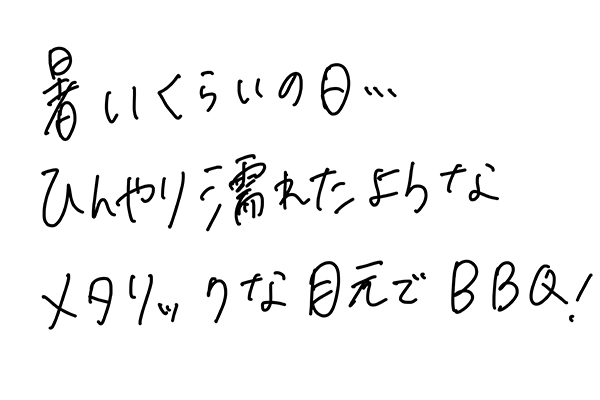 暑いくらいの日…
ひんやり濡れたような
メタリックな目元でBBQ!